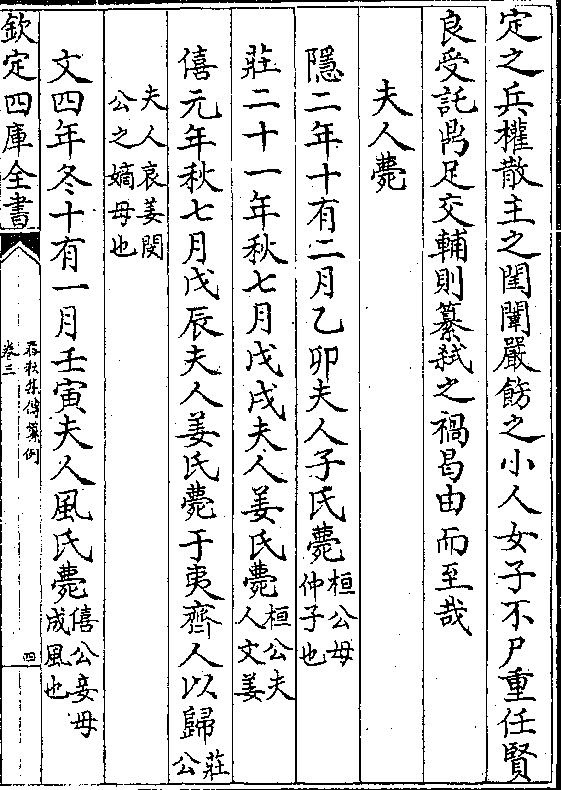 定之兵權散主之閨闥嚴飭之小人女子不尸重任賢
良受託鼎足交輔則簒弑之禍曷由而至哉
夫人薨
隱二年十有二月乙卯夫人子氏薨桓公母仲子也
莊二十一年秋七月戊戌夫人姜氏薨桓公夫人文姜
僖元年秋七月戊辰夫人姜氏薨于夷齊人以歸莊公
夫人哀姜閔公之嫡母也
文四年冬十有一月壬寅夫人風氏薨僖公妾母成風也
欽定四庫全書
卷三
四